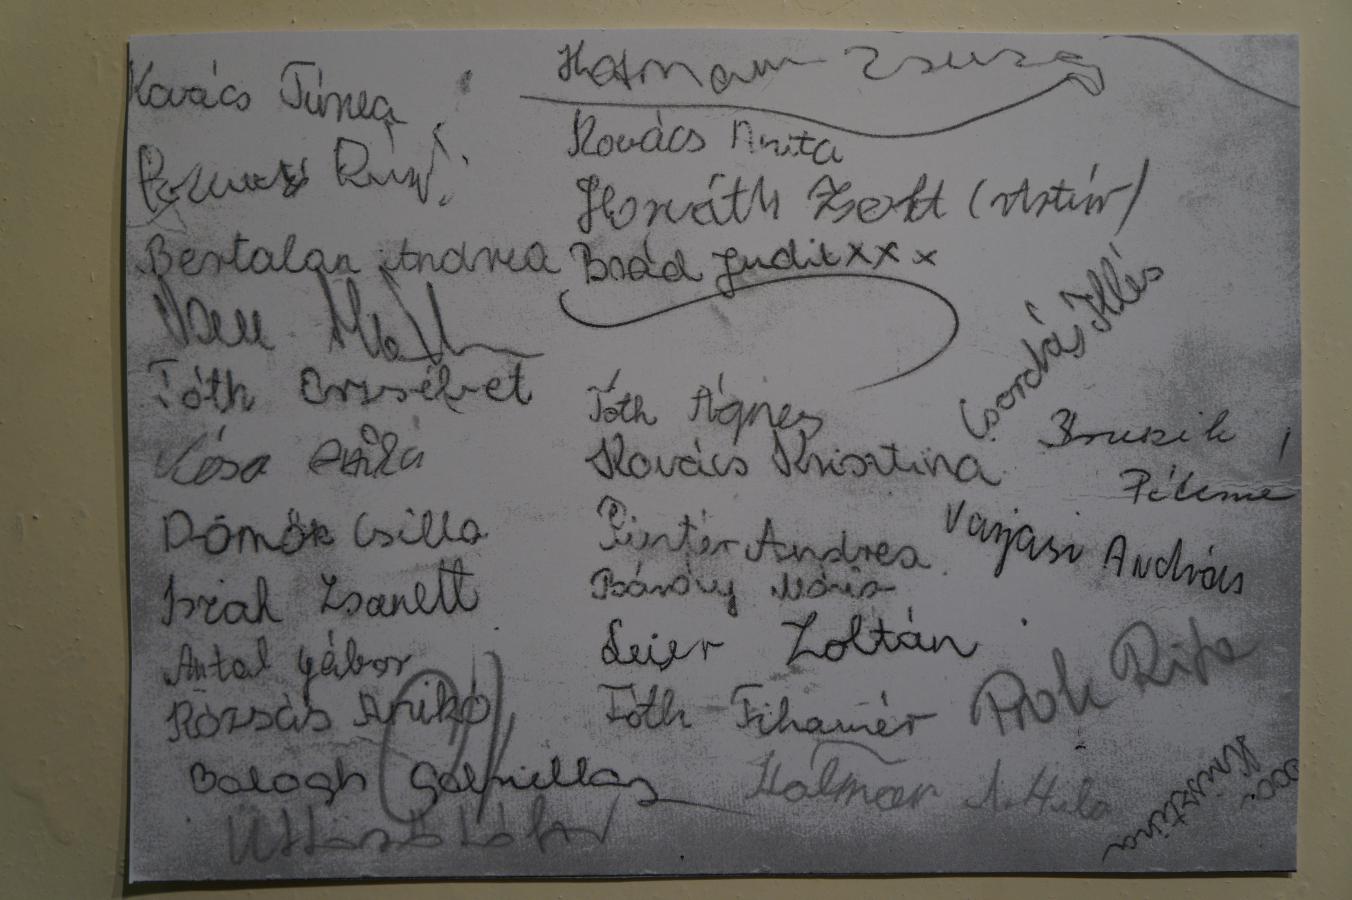 Kovács Tímea
Bertalan Andrea
Tóth Erzsébet
Kósa Attila
Dömök Csilla
Izrah Zsanett
Antal Gábor
Rózsás Anikó
Balogh Gabriella
Hofmann Zsuzsa
Kovács Anita
Horváth Zsolt (Artúr)
Brád Judit x x x
Tóth Ágnes
Kovács Krisztina
Pintér Andrea
Bárány Mária
Leier Zoltán
Tóth Tihamér
Kálmán Attila
Csordás Illés
Bruzik
Péterné
Varjasi András
Prok Rita
Krisztina